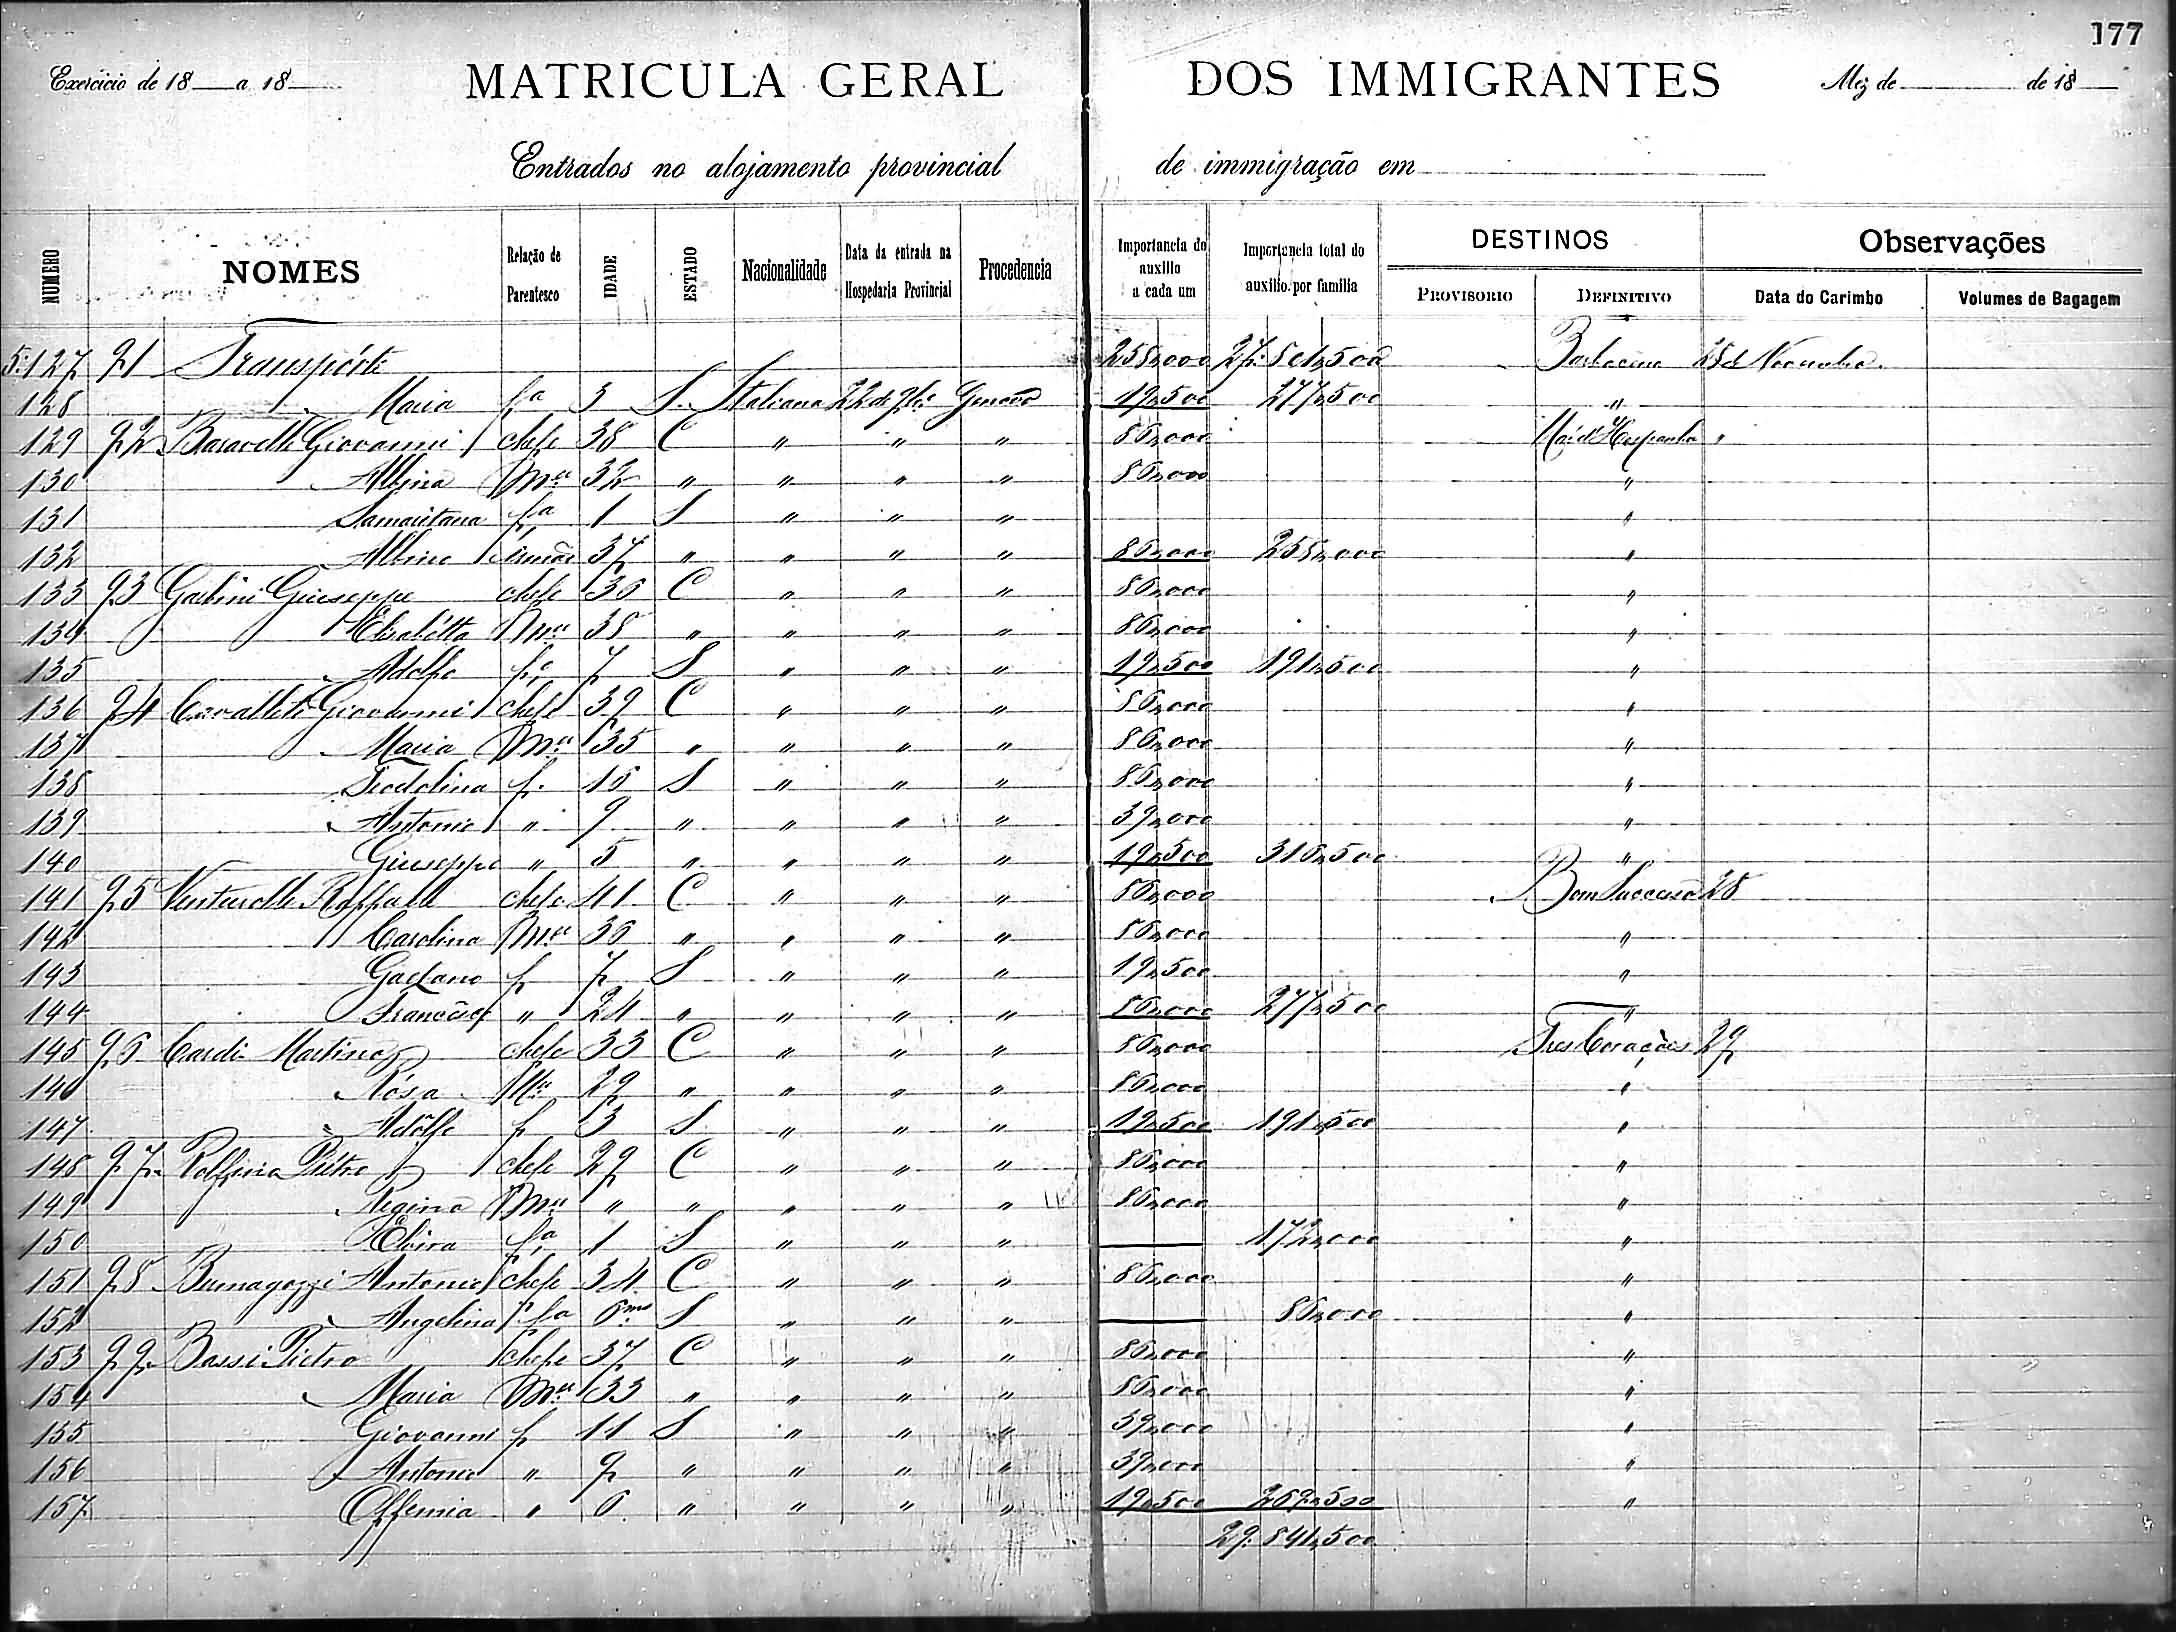 177
Exercicio de 18 a 18 MATRICULA GERAL DOS IMMIGRANTES Mez de de 18
Entrados no alojamento provincial de immigração em
NUMERO NOMES Relação de Parentesco IDADE ESTADO Nacionalidade Data da entrada na Hospedaria Provincial Procedencia Importancia do auxilio a cada um Importancia total do auxilio por familia DESTINOS PROVISORIO DEFINITIVO Observações Data do Carimbo Volumes de Bagagem
5:127 91 Transporte 258,000 Barbacena 28 de Novembro
128 Maria fa 3 S. Italiana 22 de 9bro Genova 19,500 277,500 "
129 92 Giovanni chefe 38 C " " " 86,000 Mar d'Hespanha "
130 Albina Mer 32 " " " " 86,000 "
131 Samaritana fa 1 S " " " "
132 Albino irmão 37 " " " " 86,000 258,000 "
133 93 Giuseppe chefe 36 C " " " 86,000 "
134 Elisabetta Mer 38 " " " " 86,000 "
135 Adolfo fo 7 S " " " 19,500 191,500 "
136 94 Cavalleti Giovanni chefe 39 C " " " 86,000 "
137 Maria Mer 35 " " " " 86,000 "
138 Teodolina f. 16 S " " " 86,000 "
139 Antonio " 9 " " " " 39,000 "
140 Giuseppe " 5 " " " " 19,500 316,500 "
141 95 Venturelli Raffaele chefe 41 C " " " 86,000 Bom Successo 28
142 Carolina Mer 36 " " " " 86,000 "
143 Gaetano f 7 S " " " 19,500 "
144 Francisco " 24 " " " " 86,000 277,500 "
145 96 Cardi Martino chefe 33 C " " " 86,000 Tres Corações 29
146 Rosa Mer 29 " " " " 86,000 "
147 Adolfo f 3 S " " " 19,500 191,500 "
148 97 Pietro chefe 29 C " " " 86,000 "
149 Regina Mer " " " " " 86,000 "
150 Elvira fa 1 S " " " 172,000 "
151 98 Antonio chefe 34 C " " " 86,000 "
152 Angelina fa 6ms S " " " 86,000 "
153 99 Bassi Pietro chefe 37 C " " " 86,000 "
154 Maria Mer 33 " " " " 86,000 "
155 Giovanni f 11 S " " " 39,000 "
156 Antonio " 9 " " " " 39,000 "
157 Offemia " 6 " " " " 19,500 269,500 "
29:841,500